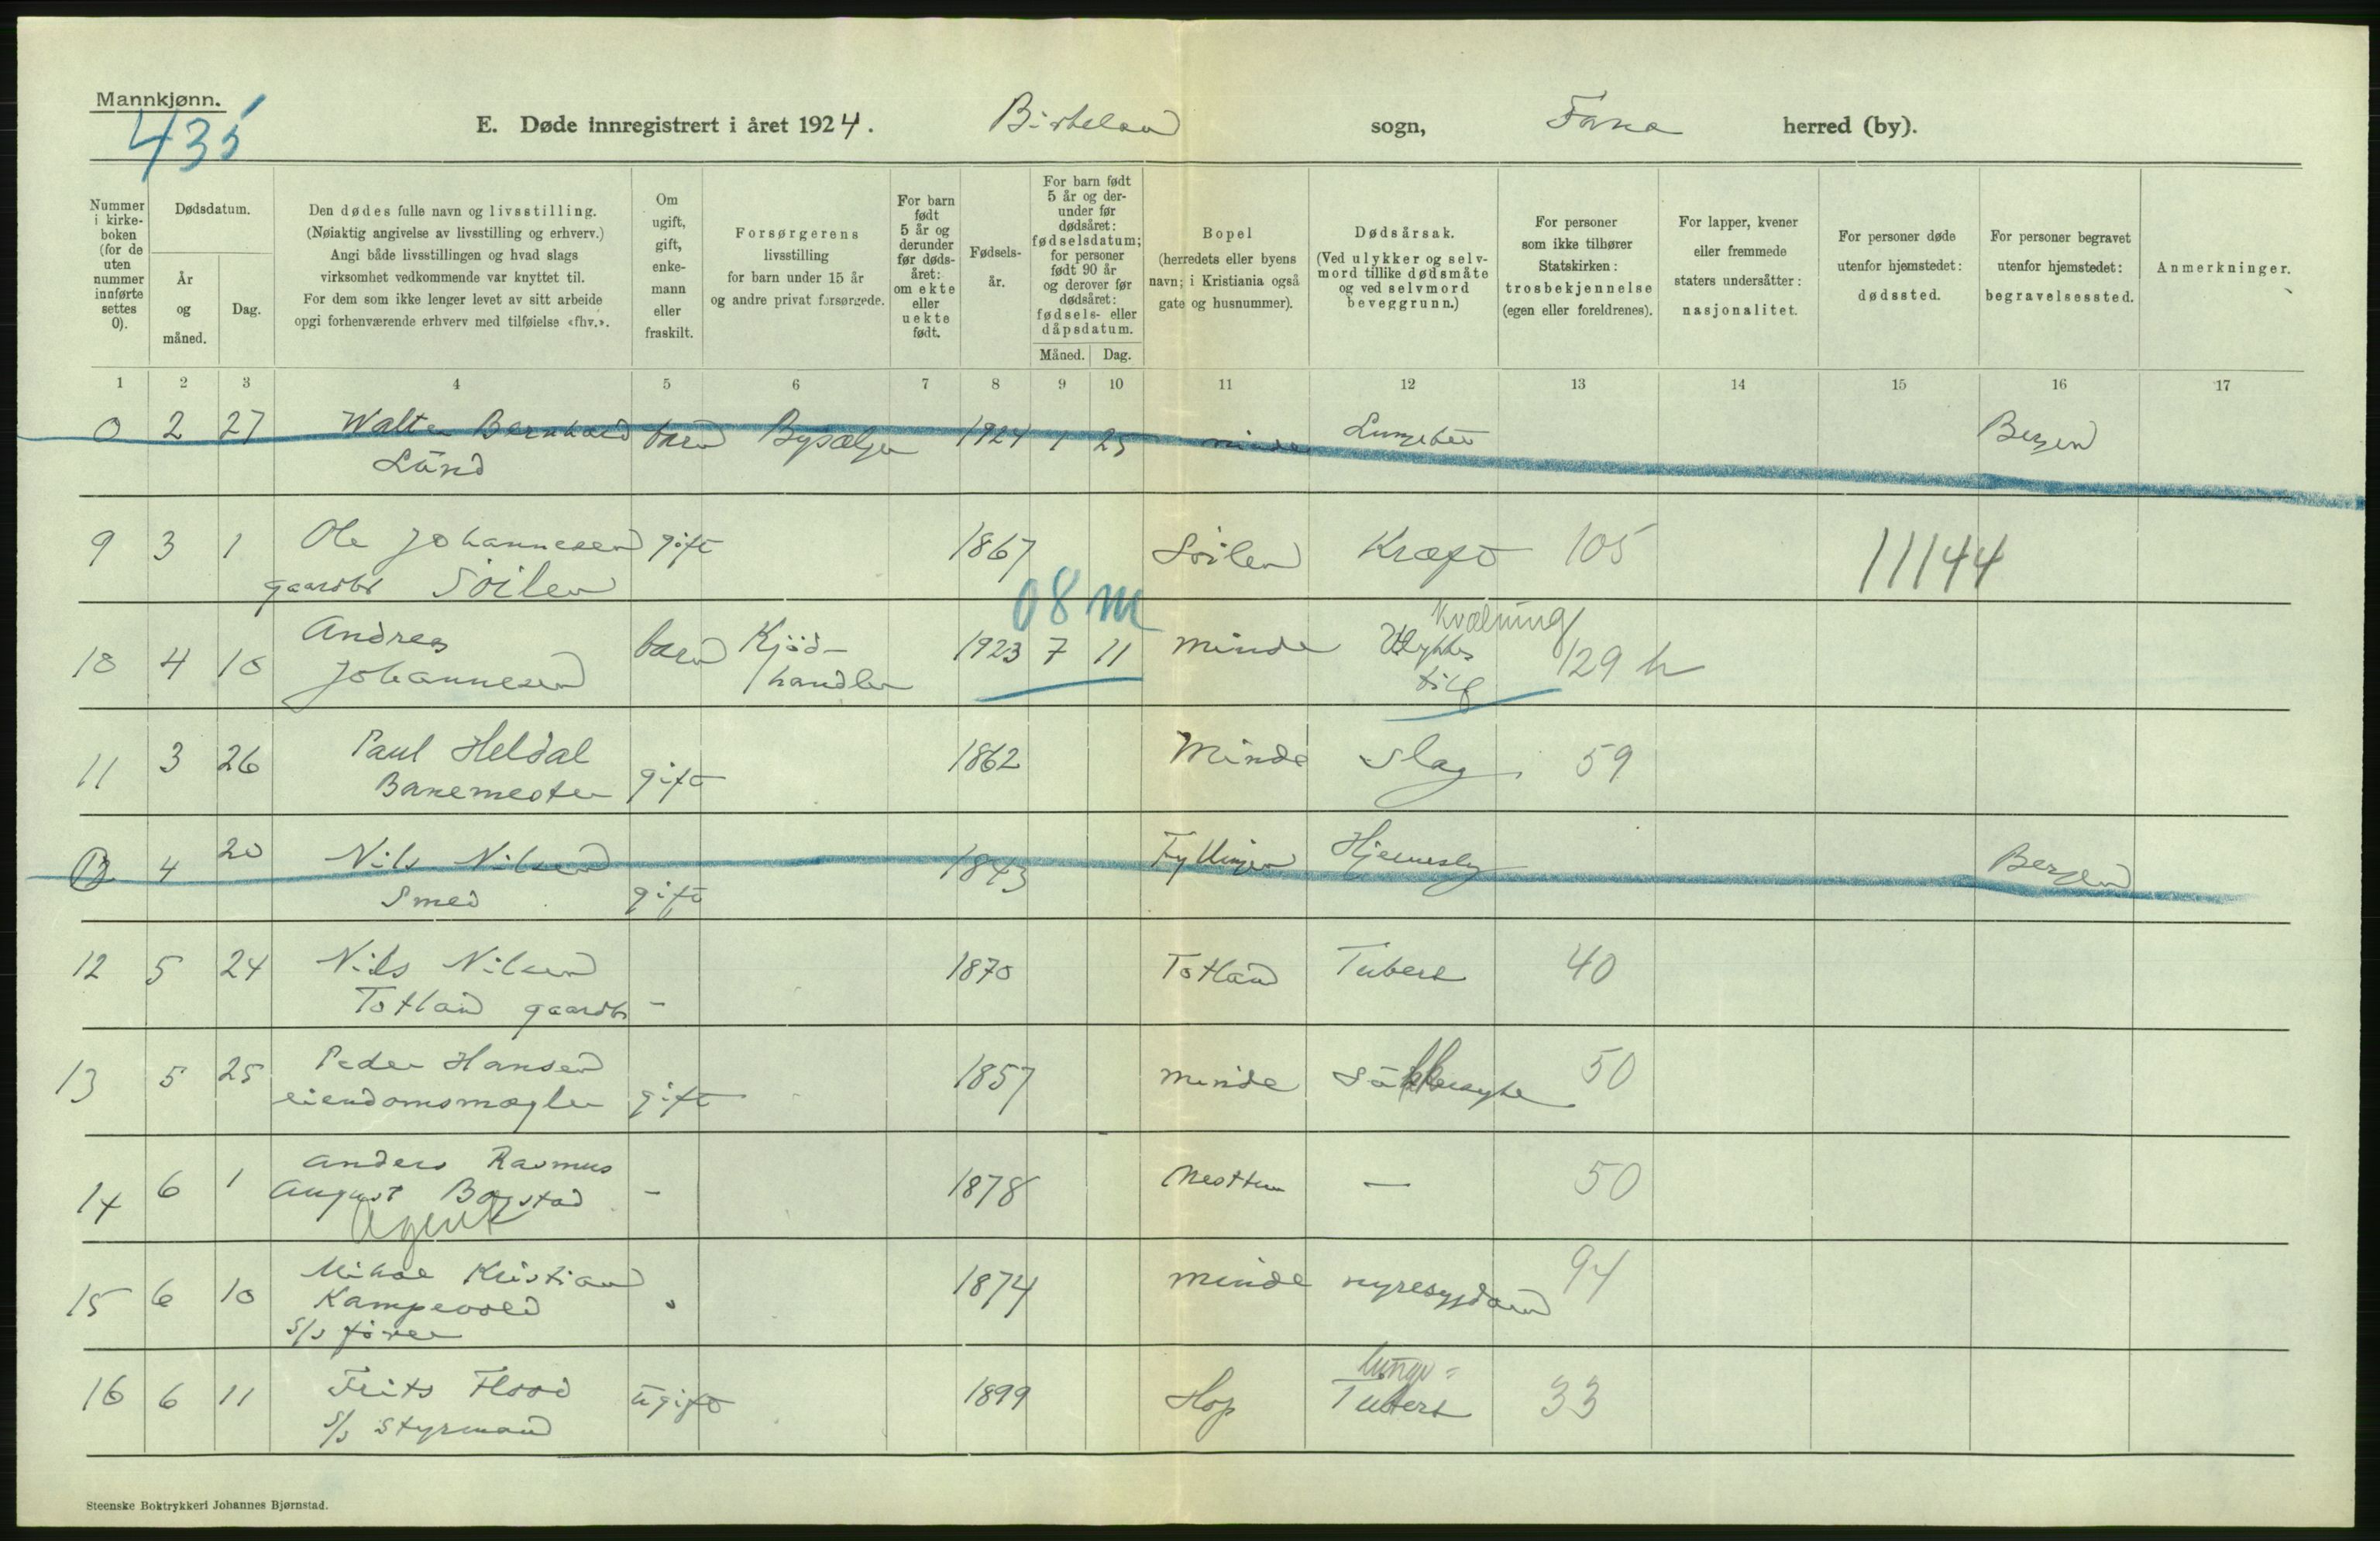 Mannkjønn.
435
E. Døde innregistrert i året 1924. Birkeland sogn, Fana herred (by).
Nummer i kirke-boken (for de uten nummer innførte settes 0).
Dødsdatum.
År og måned.
Dag.
Den dødes fulle navn og livsstilling.
(Nøiaktig angivelse av livsstilling og erhverv.)
Angi både livsstillingen og hvad slags
virksomhet vedkommende var knyttet til.
For dem som ikke lenger levet av sitt arbeide
opgi forhenværende erhverv med tilføielse «fhv.».
Om ugift, gift, enke-mann eller fraskilt.
Forsørgerens
livsstilling
for barn under 15 år
og andre privat forsørgede.
For barn født 5 år og derunder før døds-året: om ekte eller uekte født.
Fødsels-år.
For barn født 5 år og der-under før dødsåret: fødselsdatum; for personer født 90 år og derover før dødsåret: fødsels- eller dåpsdatum.
Måned. Dag.
Bopel
(herredets eller byens
navn; i Kristiania også
gate og husnummer).
Dødsårsak.
(Ved ulykker og selv-
mord tillike dødsmåte
og ved selvmord
beveggrunn.)
For personer
som ikke tilhører
Statskirken:
trosbekjennelse
(egen eller foreldrenes).
For lapper, kvener
eller fremmede
staters undersåtter:
nasjonalitet.
For personer døde
utenfor hjemstedet:
dødssted.
For personer begravet
utenfor hjemstedet:
begravelsessted.
Anmerkninger.
1 2 3 4 5 6 7 8 9 10 11 12 13 14 15 16 17
0 2 27 Walter Bernhard barn Bypælger 1924 1 25 minde Bergen
Lund
9 3 1 Ole Johannesen gift 1867 Søilen Kræft 105 11144
gaardbr Søilen
08 m
Kvælning
10 4 10 Andreas barn Kjød- 1923 7 11 Minde Ulykkes 129 h
Johannesen handler tilf
11 3 26 Paul Heldal gift 1862 Minde Slag 59
Banemester
4 20 Nils Nilsen 1843 Fyllingen Bergen
Smed gift
12 5 24 Nils Nilsen 1870 Totland Tuberk 40
Totland gaardbr -
13 5 25 Peder Hansen 1857 minde Sukkersyke 50
eiendomsmægler gift
14 6 1 Anders Rasmus - 1878 Nesttun — 50
August Bogstad
Agent
15 6 10 Mikal Kristian " 1874 minde nyresygdom 94
Kampevold
S/S fører
lunge=
16 6 11 Frits Flood ugift 1899 Hop Tuberk 33
S/S Styrmand
Steenske Boktrykkeri Johannes Bjørnstad.